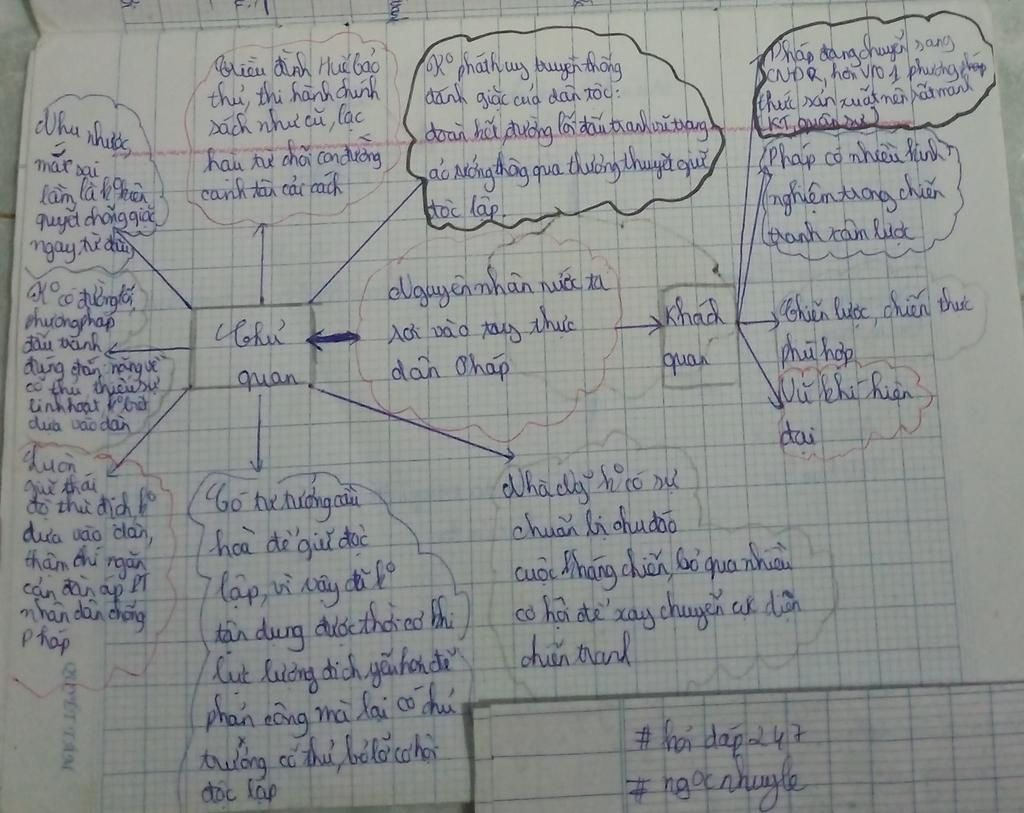 Nhu nhược,
mắc sai
lầm là k° kiên
quyết chống giặc
ngay từ đầu
Triều đình Huế bảo
thủ, thi hành chính
sách như cũ, lạc
hậu từ chối con đường
canh tân cải cách
K° phát huy truyền thống
đánh giặc của dân tộc:
đoàn kết, đường lối đấu tranh vũ trang
ảo tưởng thông qua thương thuyết giữ
độc lập.
Pháp đang chuyển sang
CNĐQ, hơn VN 1 phương pháp
thức sản xuất nên rất mạnh
(KT, quân sự)
Pháp có nhiều kinh
nghiệm trong chiến
tranh xâm lược
Chiến lược, chiến thuật
phù hợp
Vũ khí hiện
đại
Khách
quan
Nguyên nhân nước ta
rơi vào tay thực
dân Pháp
Chủ
quan
K° có đường lối,
phương pháp
đấu tranh
đúng đắn, nặng về
cố thủ thiếu sự
linh hoạt k° biết
dựa vào dân
Luôn
giữ thái
độ thù địch k°
dựa vào dân,
thậm chí ngăn
cản đàn áp PT
nhân dân chống
Pháp
Có tư tưởng cầu
hoà để giữ độc
lập, vì vậy đã k°
tận dụng được thời cơ khi
lực lượng địch yếu hơn để
phản công mà lại có chủ
trương cố thủ, bỏ lỡ cơ hội
độc lập
Nhà Ng~ k° có sự
chuẩn bị chu đáo
cuộc kháng chiến, bỏ qua nhiều
cơ hội để xoay chuyển cục diện
chiến tranh
# hỏi đáp 247
# ngocnhuyle